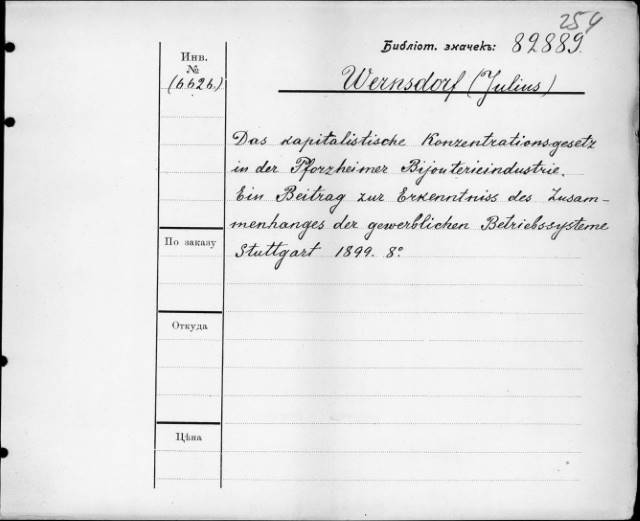 254
Библіот. значекъ: 82889.
Инв.
№
(6626.)
Wernsdorf (Julius)
Das kapitalistische Konzentrationsgesetz
in der Pforzheimer Bijouterieindustrie.
Ein Beitrag zur Erkenntniss des Zusam-
menhanges der gewerblichen Betriebssysteme
Stuttgart 1899. 8°
По заказу
Откуда
Цѣна